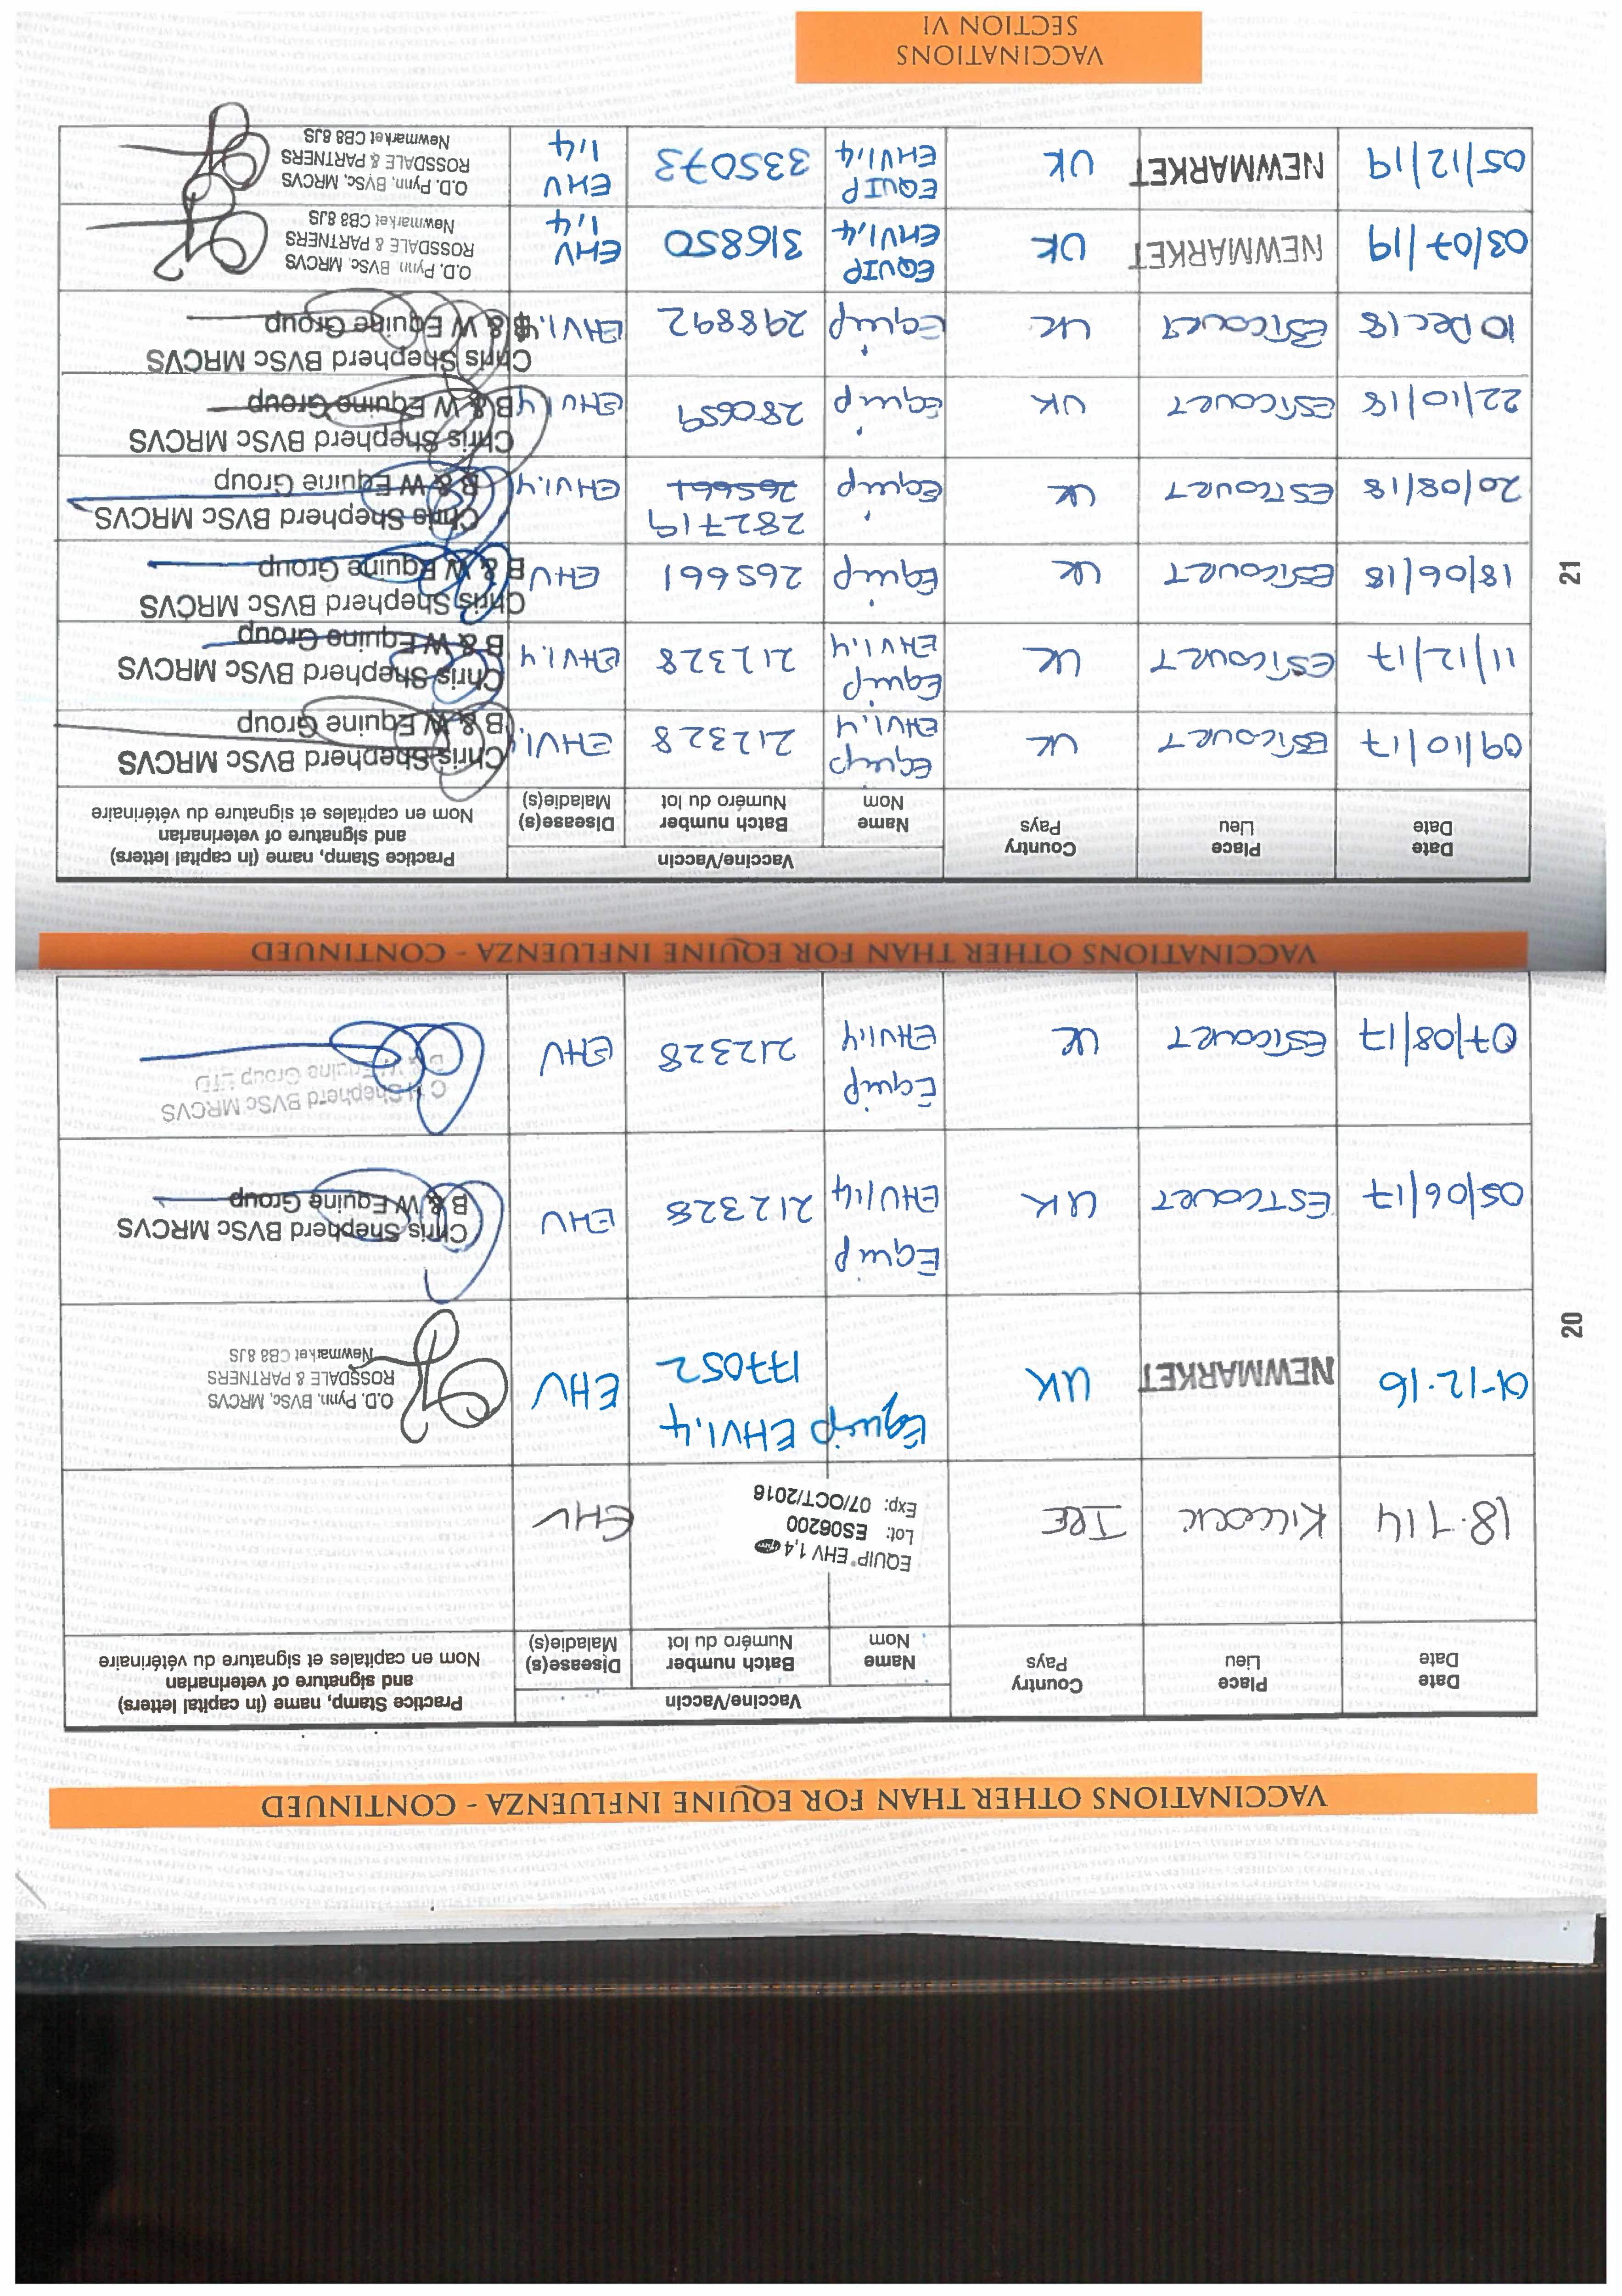 VACCINATIONS OTHER THAN FOR EQUINE INFLUENZA - CONTINUED
Date
Date
Place
Lieu
Country
Pays
Vaccine/Vaccin
Name
Nom
Batch number
Numéro du lot
Disease(s)
Maladie(s)
Practice Stamp, name (in capital letters)
and signature of veterinarian
Nom en capitales et signature du vétérinaire
18.7.14 KILCOCK IRE EHV
EQUIP® EHV 1,4
Lot: ES06200
Exp: 07/OCT/2016
01-12-16 NEWMARKET UK Equip EHV1,4 177052 EHV
O.D. Pynn, BVSc, MRCVS
ROSSDALE & PARTNERS
Newmarket CB8 8JS
05/06/17 ESTCOURT UK Equip EHV1,4 212328 EHV
Chris Shepherd BVSc MRCVS
B & W Equine Group
07/08/17 ESTCOURT UK Equip EHV1,4 212328 EHV
C H Shepherd BVSc MRCVS
B & W Equine Group LTD
20
VACCINATIONS OTHER THAN FOR EQUINE INFLUENZA - CONTINUED
Date
Date
Place
Lieu
Country
Pays
Vaccine/Vaccin
Name
Nom
Batch number
Numéro du lot
Disease(s)
Maladie(s)
Practice Stamp, name (in capital letters)
and signature of veterinarian
Nom en capitales et signature du vétérinaire
09/10/17 ESTCOURT UK Equip EHV1,4 212328 EHV1,4
Chris Shepherd BVSc MRCVS
B & W Equine Group
11/12/17 ESTCOURT UK Equip EHV1,4 212328 EHV1,4
Chris Shepherd BVSc MRCVS
B & W Equine Group
18/06/18 ESTCOURT UK Equip 265661 EHV
Chris Shepherd BVSc MRCVS
B & W Equine Group
20/08/18 ESTCOURT UK Equip 282719 265661 EHV1,4
Chris Shepherd BVSc MRCVS
B & W Equine Group
22/10/18 ESTCOURT UK Equip 280659 EHV1,4
Chris Shepherd BVSc MRCVS
B & W Equine Group
10 Dec 18 ESTCOURT UK Equip 298892 EHV1,4
Chris Shepherd BVSc MRCVS
B & W Equine Group
03/07/19 NEWMARKET UK EQUIP EHV1,4 316850 EHV 1,4
O.D. Pynn, BVSc, MRCVS
ROSSDALE & PARTNERS
Newmarket CB8 8JS
05/12/19 NEWMARKET UK EQUIP EHV1,4 335073 EHV 1,4
O.D. Pynn, BVSc, MRCVS
ROSSDALE & PARTNERS
Newmarket CB8 8JS
21
VACCINATIONS
SECTION VI